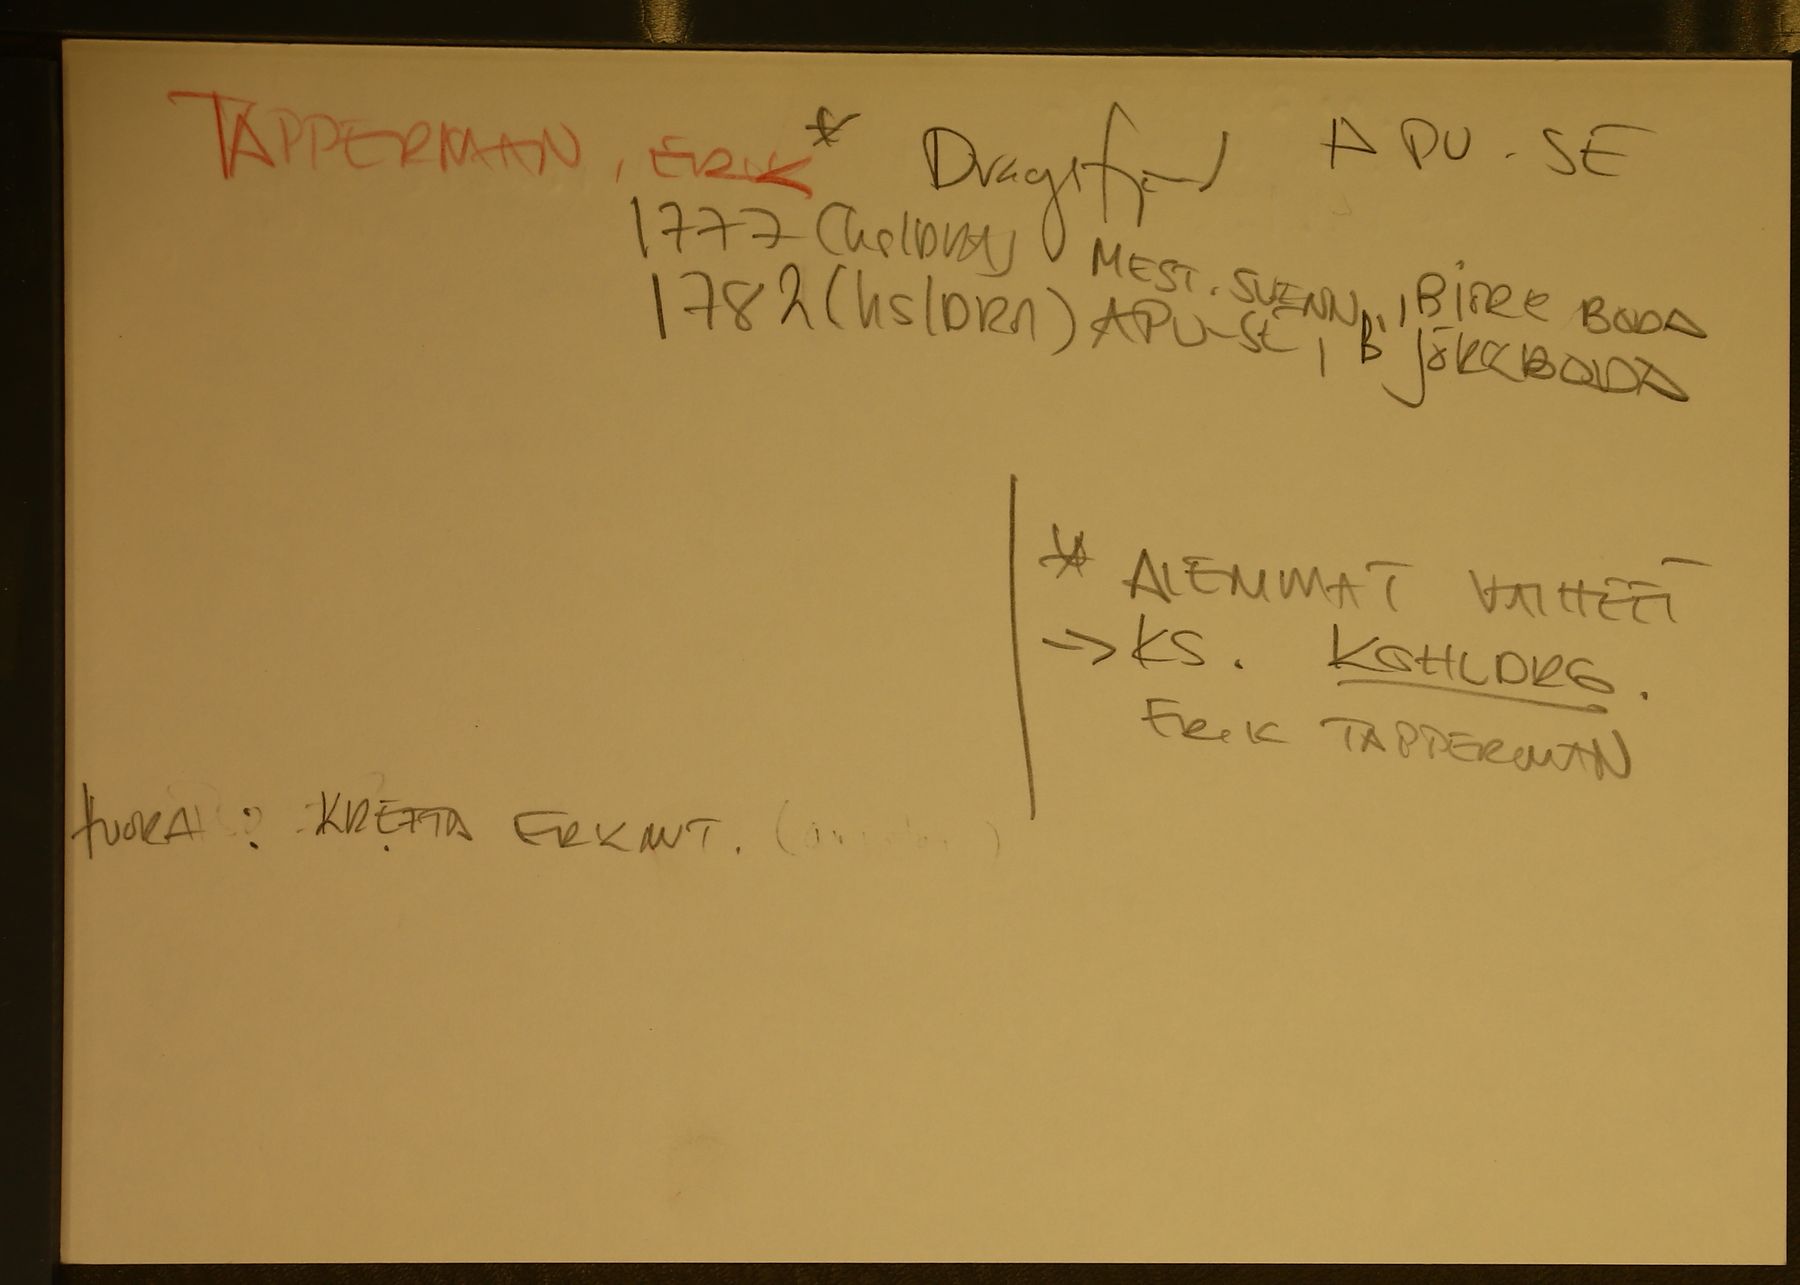 TAPPERMAN, ERIK * Dragsfjärd APU-SE
1777 MEST. SVENN., BIÖRKBODA
1782 (hs/DRA) APU-SE, BJÖRKBODA
* ALEMMAT VAIHEET
→ KS. KGHLDRG.
ERIK TAPPERMAN
KREETTA ERKINT.